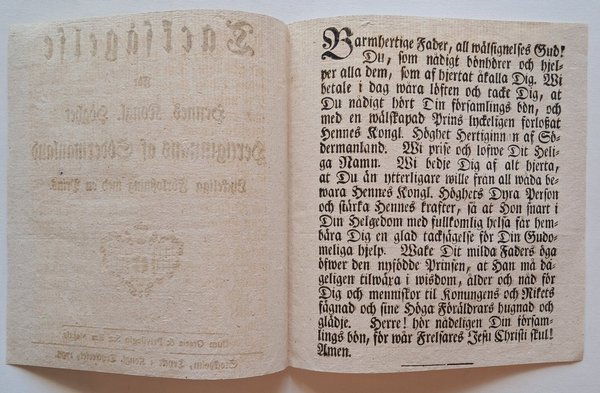 Tacksägelse
för
Hennes Kongl. Höghet
Hertiginnans af Södermanland
Lyckeliga Förlossning med en Prins
Cum Gratia & Privilegio S:æ R:æ Maj:tis
Stockholm, Tryckt i Kongl. Tryckeriet,
Barmhertige Fader, all wälsignelses Gud!
Du, som nådigt bönhörer och hjel-
per alla dem, som af hjertat åkalla Dig. Wi
betale i dag wåra löften och tacke Dig, at
Du nådigt hört Din församlings bön, och
med en wälskapad Prins lyckeligen förlossat
Hennes Kongl. Höghet Hertiginnan af Sö-
dermanland. Wi prise och lofwe Dit Heli-
ga Namn. Wi bedje Dig af alt hjerta,
at Du än ytterligare wille från all wåda be-
wara Hennes Kongl. Höghets Dyra Person
och stärka Hennes krafter, så at Hon snart i
Din Helgedom med fullkomlig helsa får hem-
bära Dig en glad tacksägelse för Din Gudo-
meliga hjelp. Wake Dit milda Faders öga
öfwer den nyfödde Prinsen, at Han må da-
geligen tilwäxa i wisdom, ålder och nåd för
Dig och menniskor til Konungens och Rikets
fägnad och sine Höga Föräldrars hugnad och
glädje. Herre! hör nådeligen Din försam-
lings bön, för wår Frelsares Jesu Christi skul!
Amen.